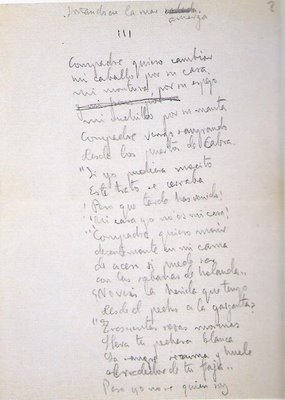 2
soñando en la mar
amarga
III
Compadre quiero cambiar
mi caballo por su casa
mi montura por su espejo
mi cuchillo por su manta
Compadre vengo sangrando
desde los puertos de Cabra.
"Si yo pudiera mocito
Este trato se cerraba
! Pero que tarde has venido!
! Mi casa ya no es mi casa!
"Compadre, quiero morir
decentemente en mi cama
de acero si puede ser
con las sabanas de holanda..
¿No veis la herida que tengo
desde el pecho a la garganta?
"Trescientas rosas morenas
lleva tu pechera blanca
Tu sangre rezuma y huele
alrededor de tu faja..
Pero yo no se quien soy